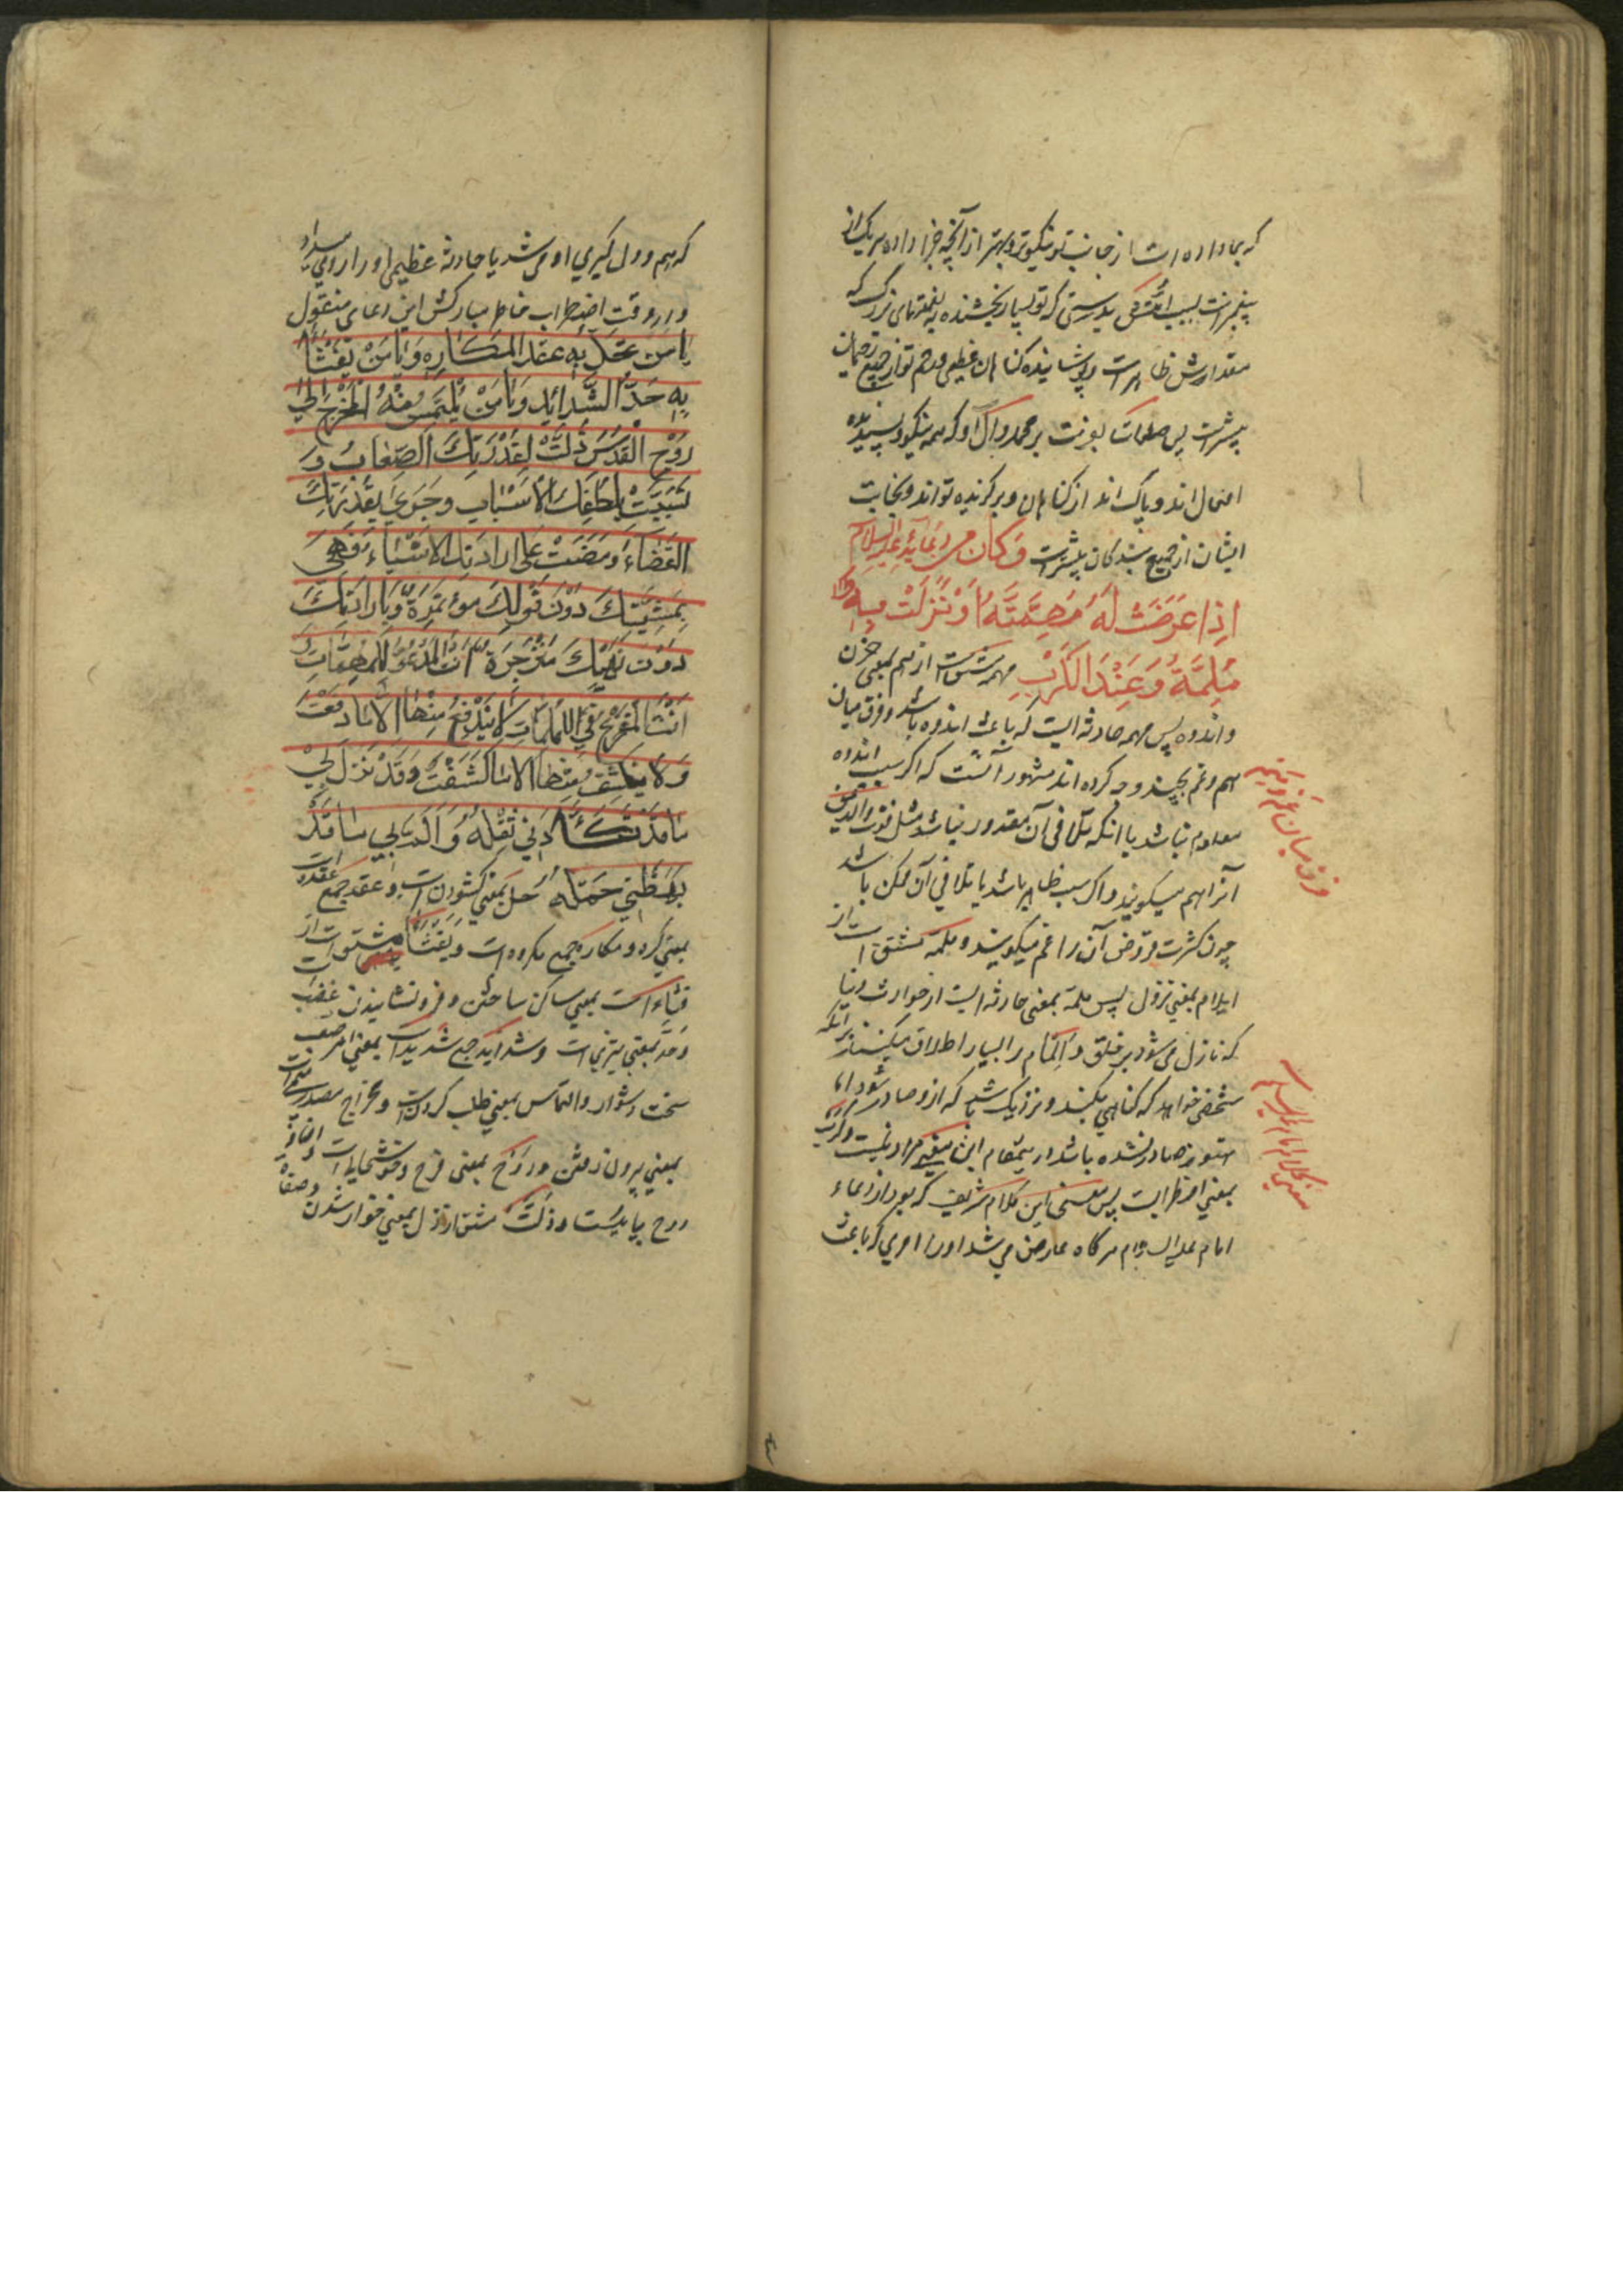 که بما داده است از جانب تو نیکوتر و بهتر از آنچه جزا داده هر یک از
پیغمبرانت بسبب امتش بدرستی که تو بسیار بخشنده نعمتهای بزرگ که
مقدارش ظاهر است و پوشاننده کناهان عظیمی و رحم تو از جمیع رحیمان
بیشتر است پس صلوات بفرست بر محمد و آل او که همه نیکو و پسندیده
اعمال اند و پاک اند از کناهان و برکزیده تو اند و نجابت
ایشان از جمیع بندکان بیشتر است وَكَانَ مِن دُعَائِهِ عليه السلام
اِذَا عَرَضَتْ لَهُ مُهِمَّةٌ اَوْ نَزَلَتْ بِهِ
مُلِمَّةٌ وَعِنْدَ الْكَرْبِ مهمه مشتق است از هم بمعنی حزن
و اندوه پس مهمه حادثه ایست که باعث اندوه باشد و فرق میان
هم و غم بچند وجه کرده اند مشهور آنست که اکر سبب اندوه
معلوم نباشد یا آنکه تلافی آن مقدور نباشد مثل فوت والدین
آنرا هم میکویند و اکر سبب ظاهر باشد یا تلافی آن ممکن باشد
چون کثرت قروض آن را غم میکویند و ملمّه مشتق است از
ایلام بمعنی نزول پس ملمّه بمعنی حادثه ایست از حوادث دنیا
که نازل می شود بر خلق و اِلمام را بسیار اطلاق میکنند بر آنکه
شخصی خواهد که کناهی بکند و نزدیک باشد که از و صادر شود اما
هنوز صادر نشده باشد در ینمقام این معنی مراد نیست و کَرْب
بمعنی اضطرابست پس معنی این کلام شریف که بود از دعاء
امام علیه السلام هرکاه عارض می شد او را امری که باعث
فرق میان غم و هم
که هم و دل کیری او می شد یا حادثه عظیمی او را رو میداد
و در وقت اضطراب خاطر مبارکش این دعای منقول
يَا مَنْ تُحَلُّ بِهِ عُقَدُ الْمَكَارِهِ وَيَا مَنْ يُفْثَأُ
بِهِ حَدُّ الشَّدَائِدِ وَيَا مَنْ يُلْتَمَسُ مِنْهُ الْمَخْرَجُ اِلَى
رَوْحِ الْفَرَجِ ذَلَّتْ لِقُدْرَتِكَ الصِّعَابُ وَ
تَسَبَّبَتْ بِلُطْفِكَ الْاَسْبَابُ وَجَرَى بِقُدْرَتِكَ
الْقَضَاءُ وَمَضَتْ عَلَى اِرَادَتِكَ الْاَشْيَاءُ فَهِيَ
بِمَشِيَّتِكَ دُوْنَ قَوْلِكَ مُؤْتَمِرَةٌ وَبِاِرَادَتِكَ
دُوْنَ نَهْيِكَ مُنْزَجِرَةٌ اَنْتَ الْمَدْعُوُّ لِلْمُهِمَّاتِ وَ
اَنْتَ الْمَفْزَعُ فِي الْمُلِمَّاتِ لَا يَنْدَفِعُ مِنْهَا اِلَّا مَا دَفَعْتَ
وَلَا يَنْكَشِفُ مِنْهَا اِلَّا مَا كَشَفْتَ وَقَدْ نَزَلَ بِيْ
مَا قَدْ تَكَأَّدَنِي ثِقْلُهُ وَاَلَمَّ بِي مَا قَدْ
بَهَظَنِي حَمْلُه حَلّ بمعنی کشودن است و عقد جمع عقده است
بمعنی کره و مکاره جمع مکروه است و یُفْثَأُ مشتق است از
فثاء است بمعنی ساکن ساختن و فرو نشانیدن غضب است
و حدّ بمعنی تیزی است و شداید جمع شدید است بمعنی امر صعب
سخت و دشوار و التماس بمعنی طلب کردن است و مخرج مصدر میمی است
بمعنی بیرون رفتن و رَوْح بمعنی فرح و خوشحالی است و اضافه
روح بیانیست و ذلّت مشتق از ذل بمعنی خوار شدن